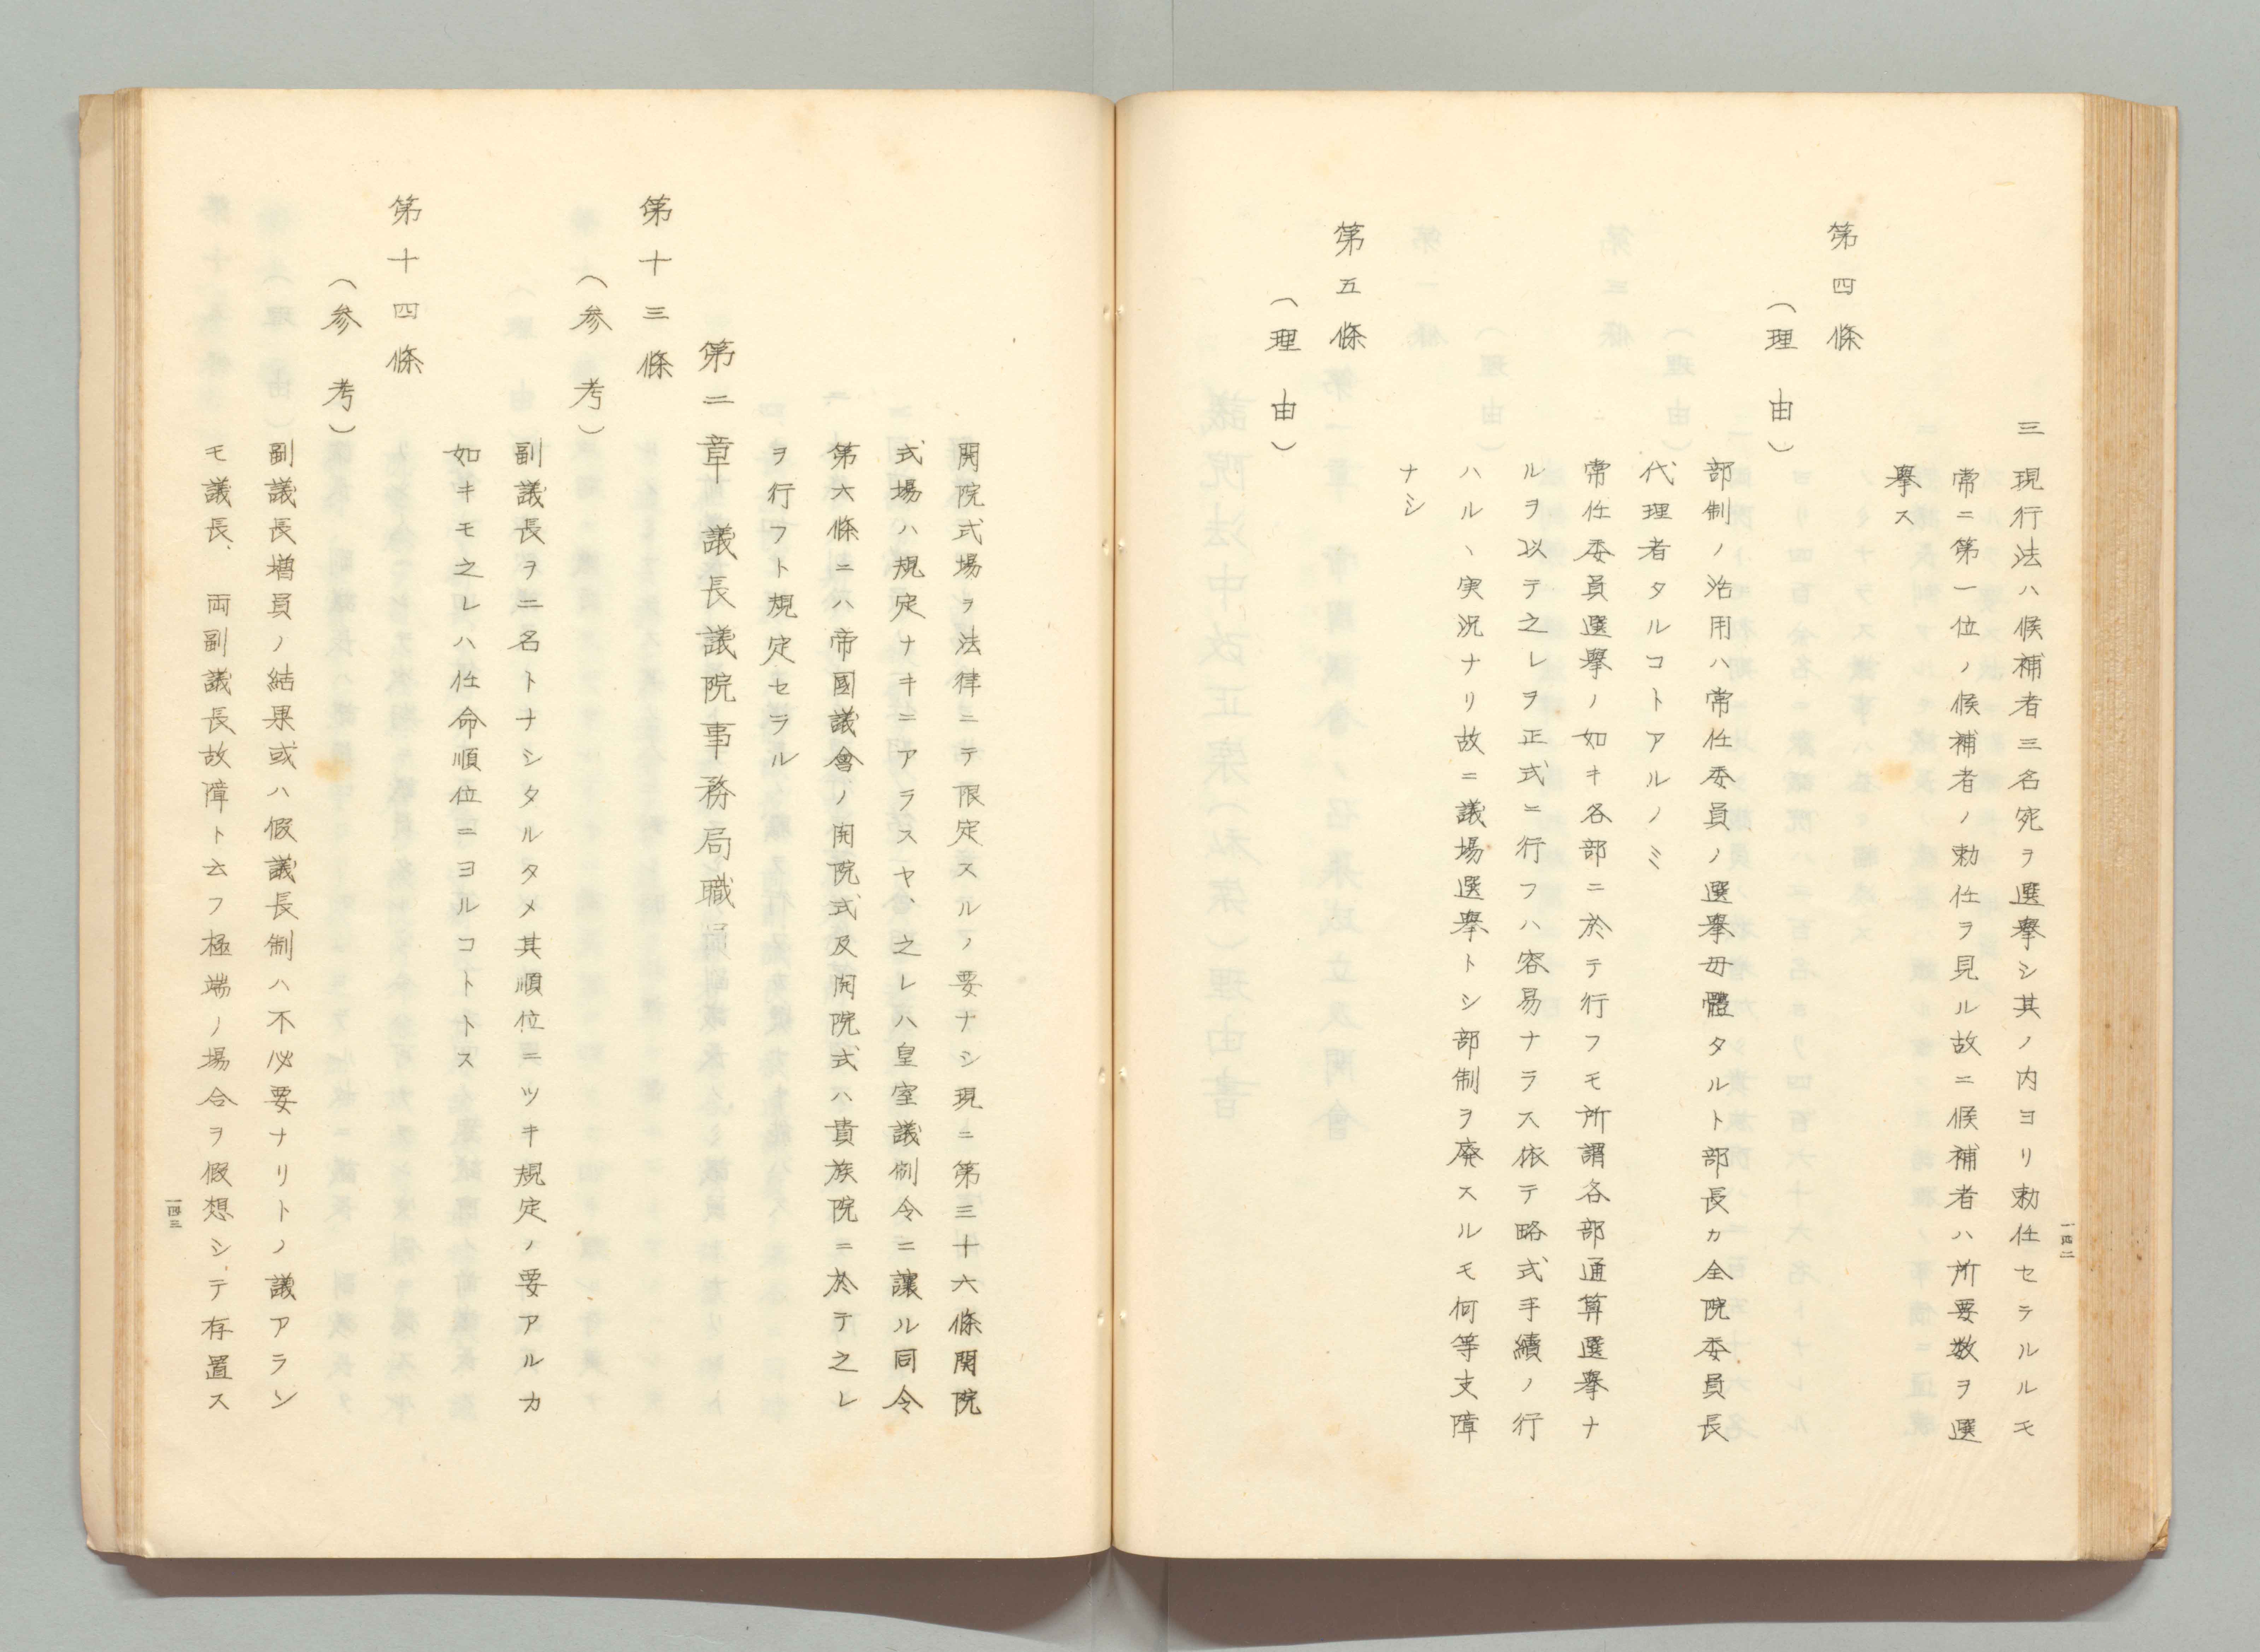 三現行法ハ候補者三名宛ヲ選擧シ其ノ内ヨリ勅任セラルルモ
常ニ第一位ノ候補者ノ勅任ヲ見ル故ニ候補者ハ所要数ヲ選
擧ス
第四條
（理由）
部制ノ活用ハ常任委員ノ選擧母體タルト部長カ全院委員長
代理者タルコトアルノミ
常任委員選擧ノ如キ各部ニ於テ行フモ所謂各部通算選擧ナ
ルヲ以テ之レヲ正式ニ行フハ容易ナラス依テ略式手續ノ行
ハルヽ実況ナリ故ニ議場選擧トシ部制ヲ廃スルモ何等支障
ナシ
第五條
（理由）
一四二
開院式場ヲ法律ニテ限定スルノ要ナシ現ニ第三十六條閉院
式場ハ規定ナキニアラスヤ、之レハ皇室議制令ニ讓ル同令
第六條ニハ帝國議會ノ開院式及閉院式ハ貴族院ニ於テ之レ
ヲ行フト規定セラル
第二章 議長議院事務局職員
第十三條
（参考）
副議長ヲ二名トナシタルタメ其順位ニツキ規定ノ要アルカ
如キモ之レハ任命順位ニヨルコトトス
第十四條
（参考）
副議長増員ノ結果或ハ假議長制ハ不必要ナリトノ議アラン
モ議長、両副議長故障ト云フ極端ノ場合ヲ假想シテ存置ス
一四三